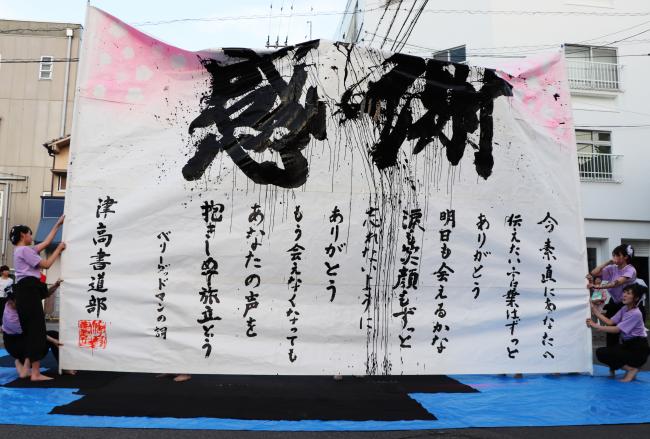 感謝
今素直にあなたへ
伝えたい言葉はずっと
ありがとう
明日も会えるかな
涙も笑顔もずっと
忘れないように
ありがとう
もう会えなくなっても
あなたの声を
抱きしめて旅立とう
ベリーグッドマンの詞
津高書道部